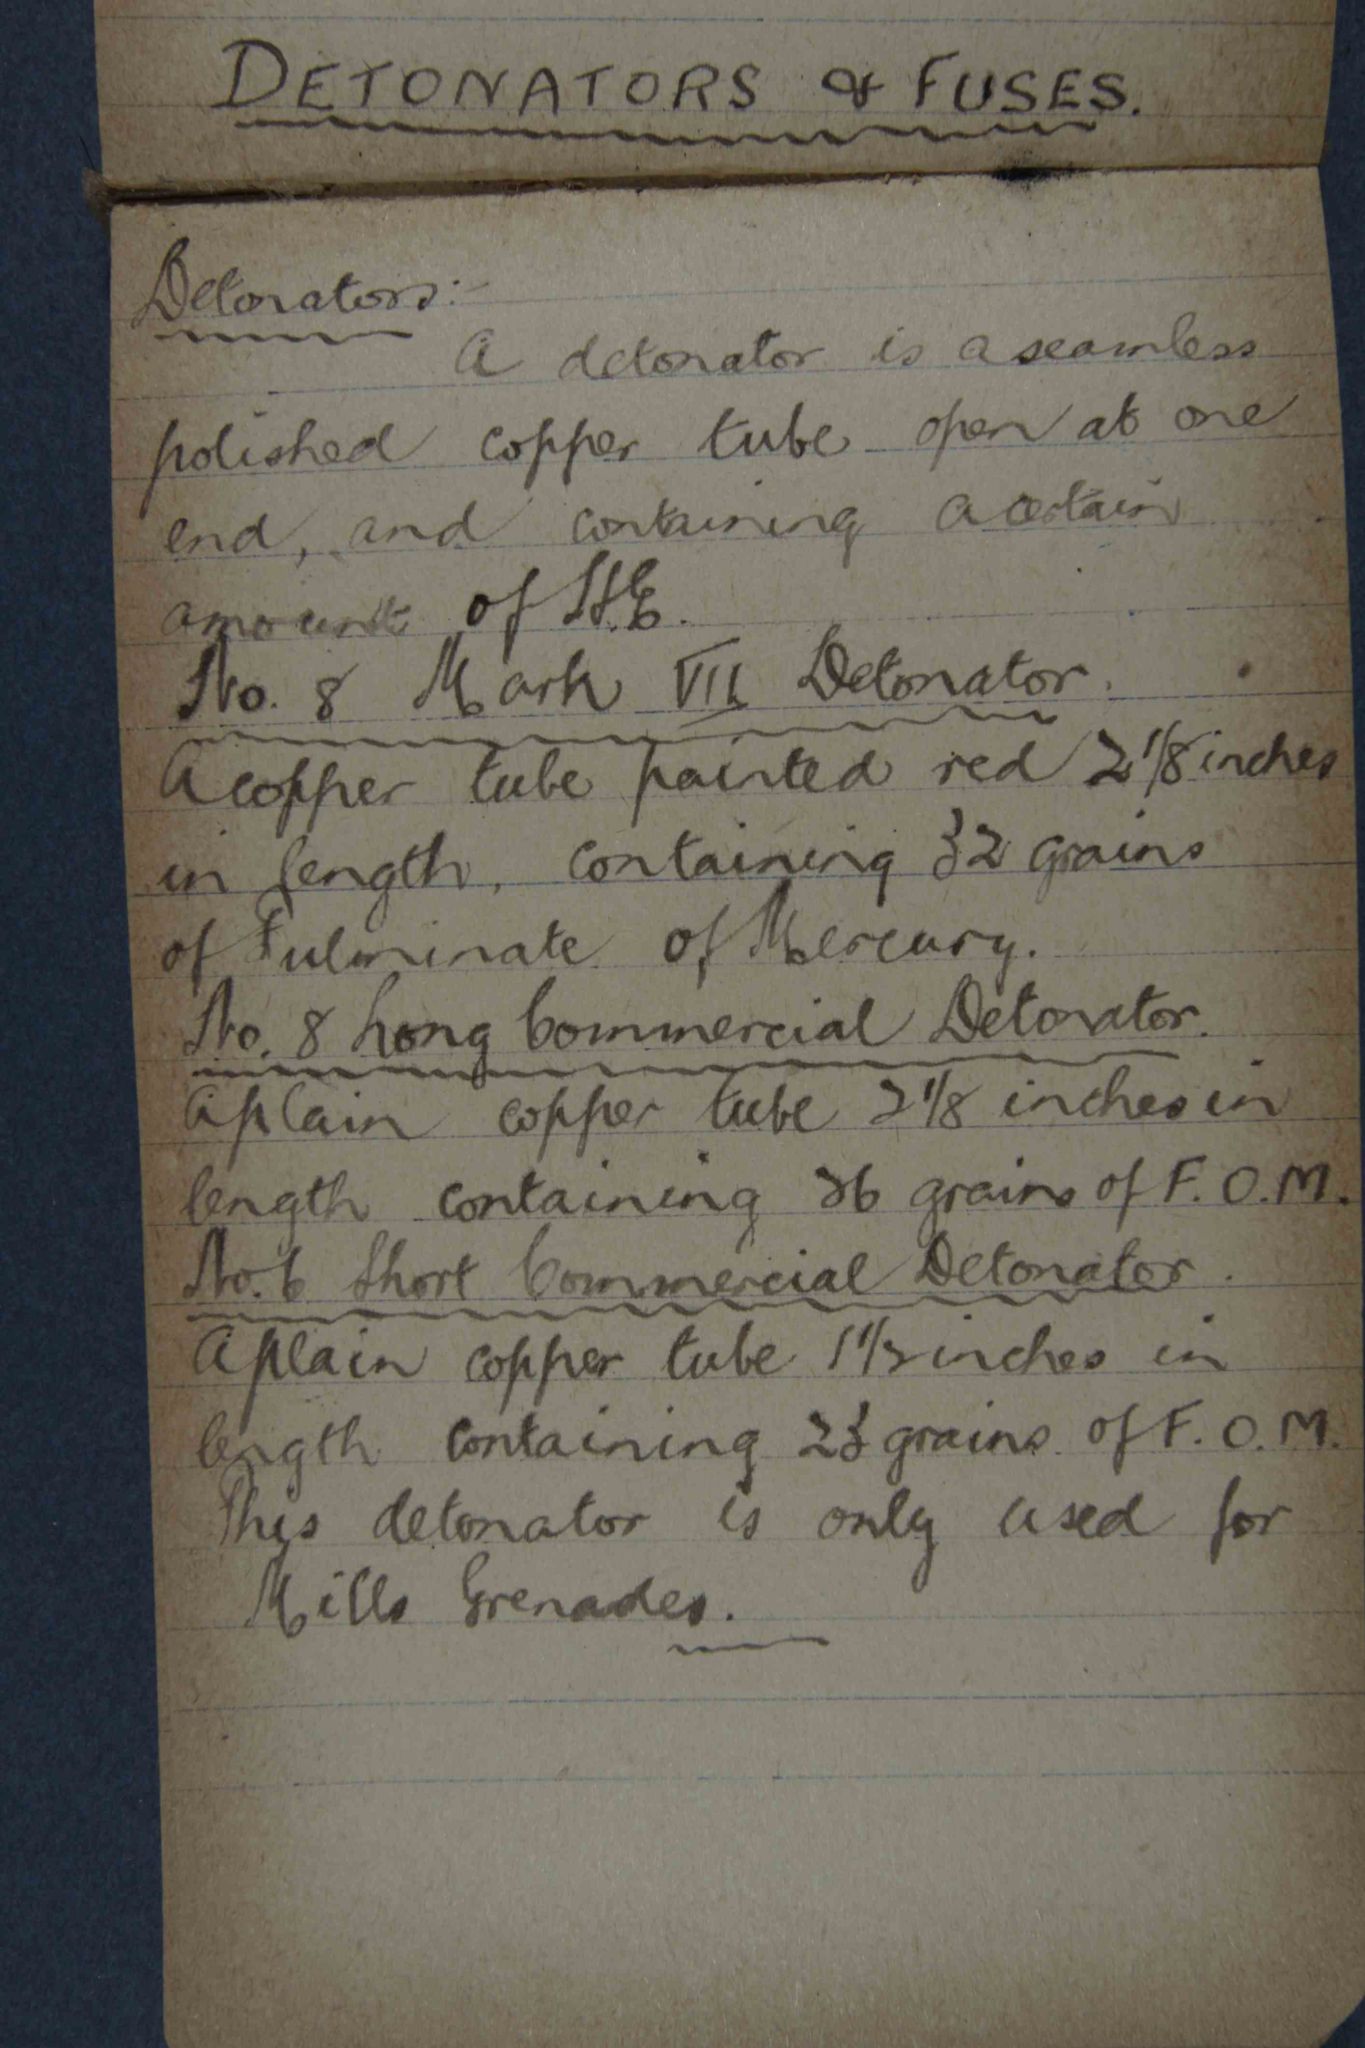 DETONATORS & FUSES.
Detonators:-
A detonator is a seamless
polished copper tube open at one
end, and containing a certain
amount of H.E.
No. 8 Mark VII Detonator.
A copper tube painted red 2 1/8 inches
in length, containing 32 grains
of Fulminate of Mercury.
No. 8 Long Commercial Detonator.
A plain copper tube 2 1/8 inches in
length containing 36 grains of F.O.M.
No. 6 Short Commercial Detonator.
A plain copper tube 1 1/2 inches in
length containing 23 grains of F.O.M.
This detonator is only used for
Mills Grenades.